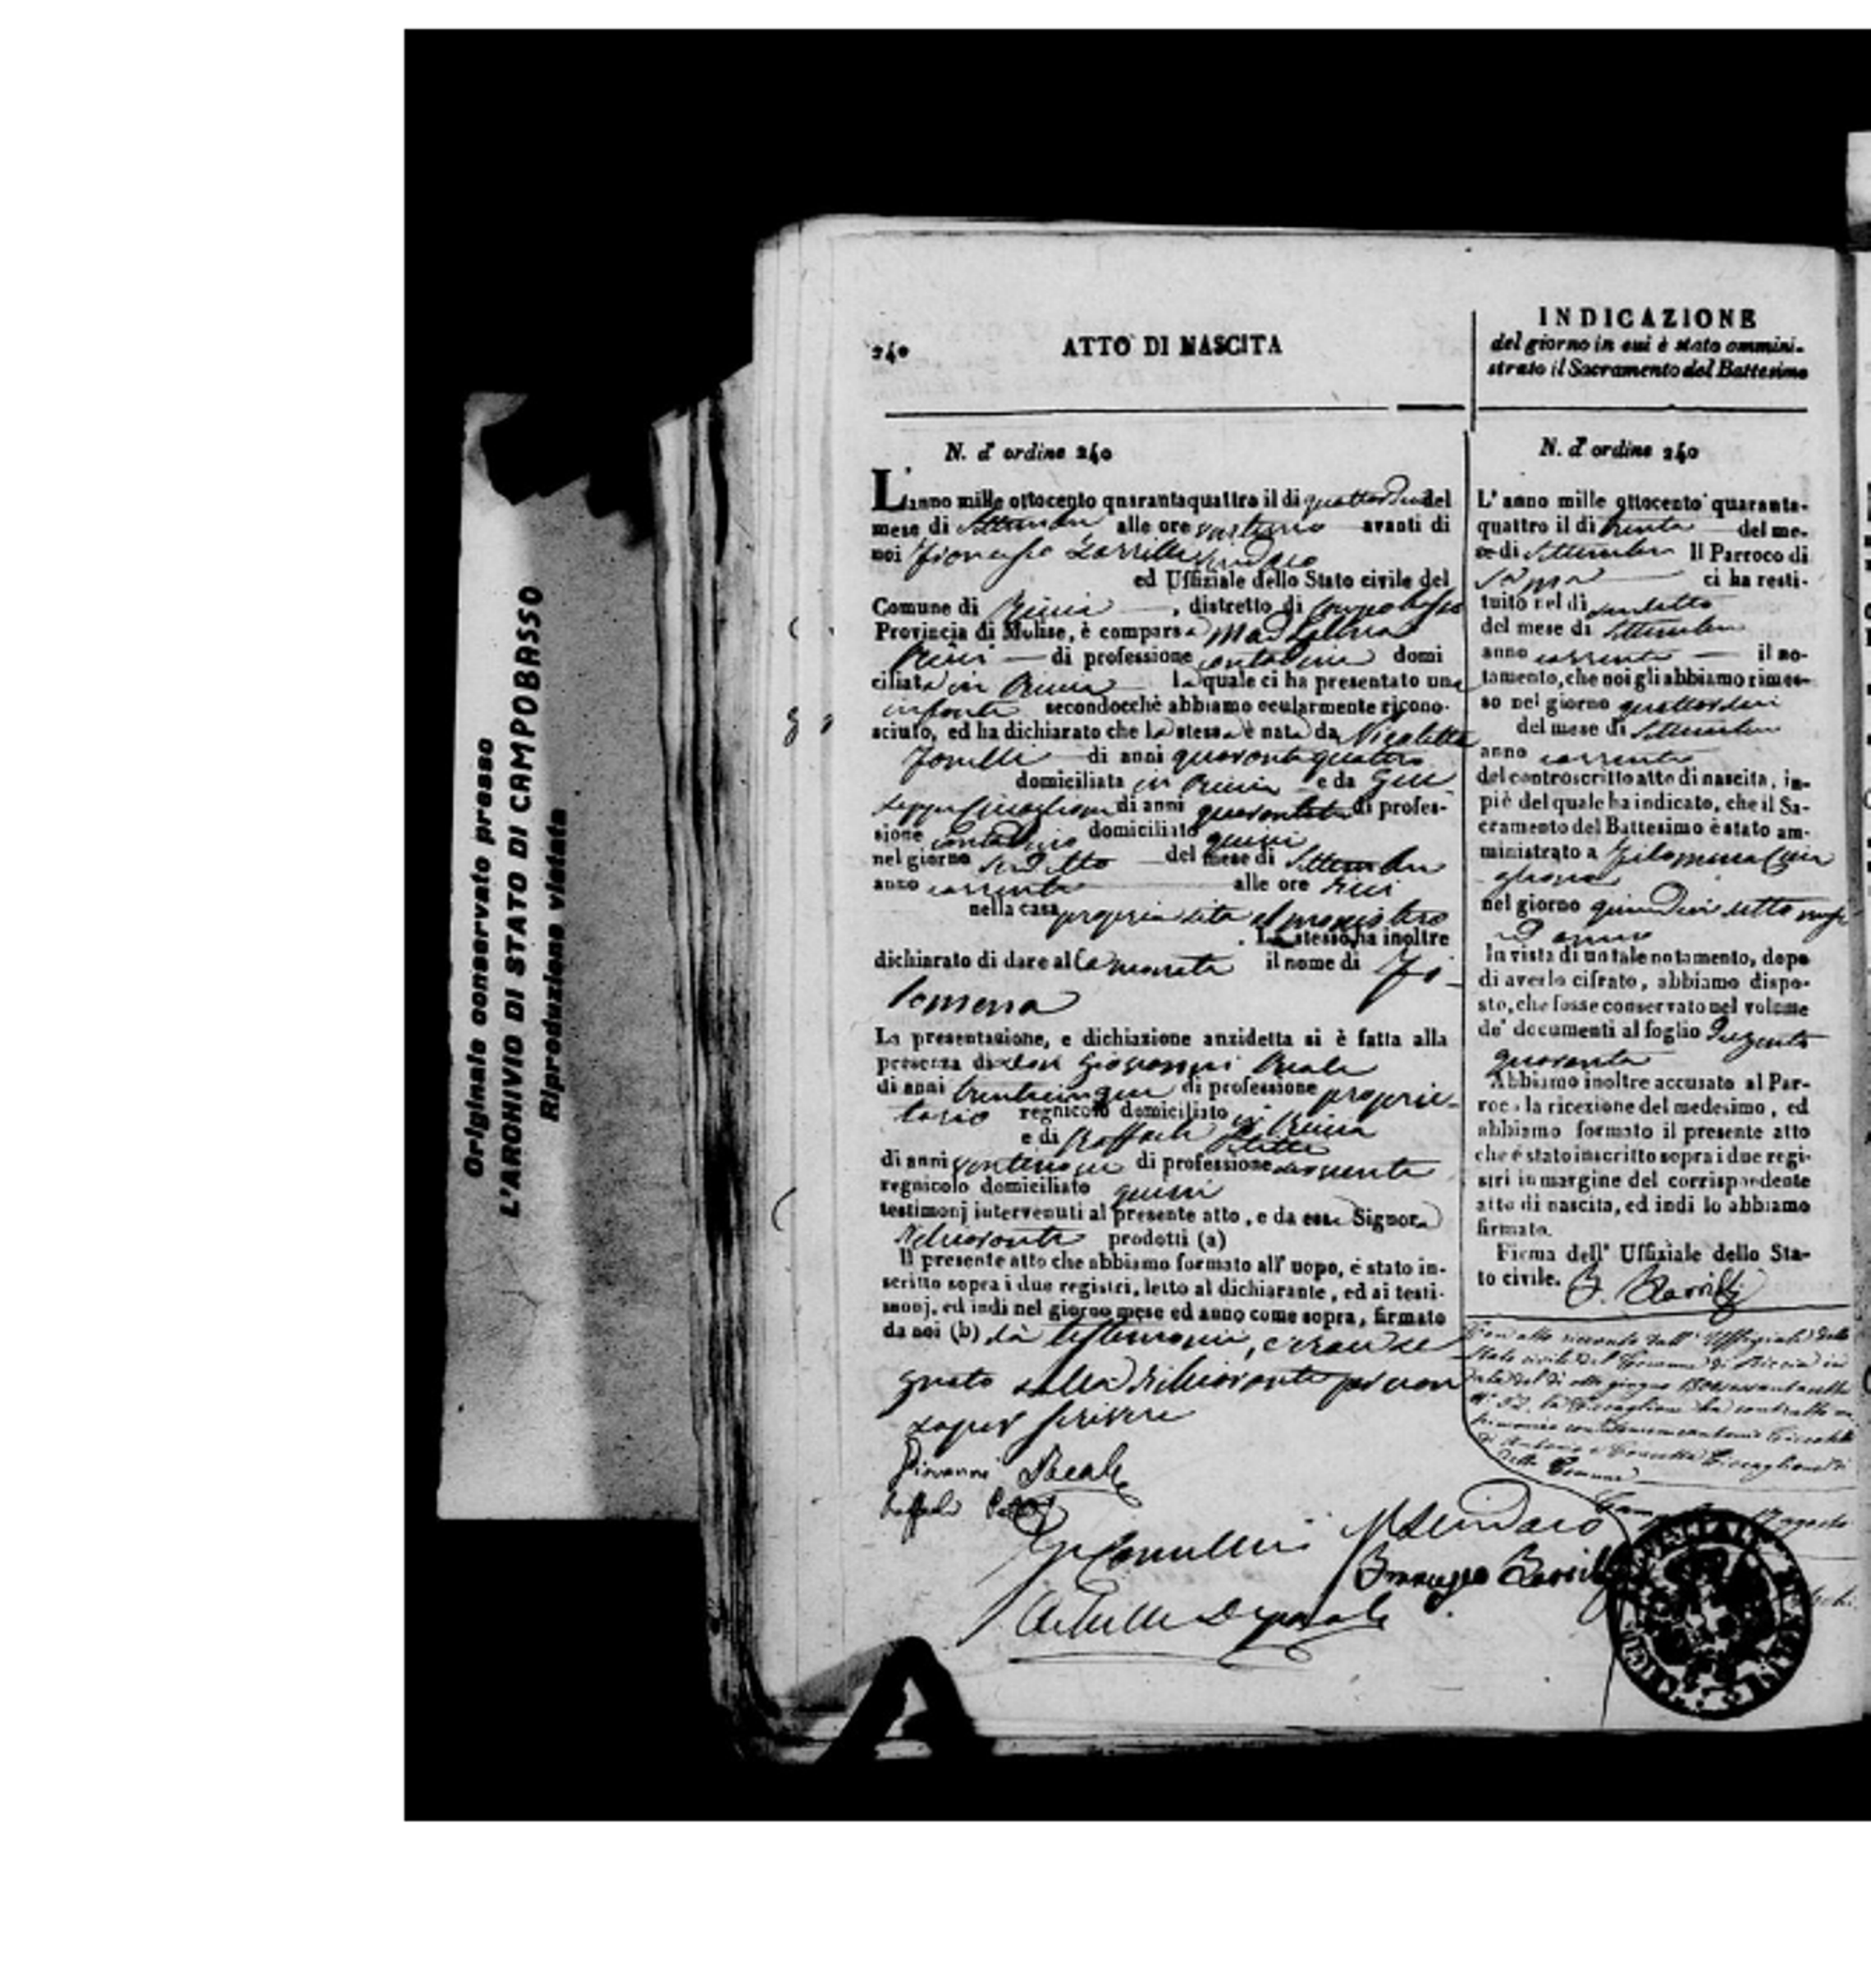 Originale conservato presso
L'ARCHIVIO DI STATO DI CAMPOBASSO
Riproduzione vietata
240
ATTO DI NASCITA
N. d' ordine 240
L'anno mille ottocento quarantaquattro il di quattordici del
mese di Settembre alle ore avanti di
noi Sindaco
ed Uffiziale dello Stato civile del
Comune di Riccia , distretto di Campobasso
Provincia di Molise, è comparsa
di professione contadina domi
ciliata in Riccia la quale ci ha presentato una
infante secondocchè abbiamo ocularmente ricono-
sciuto, ed ha dichiarato che la stessa è nata da Nicoletta
Fanelli di anni quarantaquattro
domiciliata in Riccia e da Giu
seppe Ciccaglione di anni di profes-
sione contadino domiciliato quivi
nel giorno sudetto del mese di Settembre
anno corrente alle ore dieci
nella casa propria sita
. La stesso ha inoltre
dichiarato di dare alla neonata il nome di Fi-
lomena
La presentazione, e dichiazione anzidetta si è fatta alla
presenza di Don Giovanni Reale
di anni trentacinque di professione proprie-
tario regnicolo domiciliato in Riccia
e di Raffaele
di anni di professione serviente
regnicolo domiciliato quivi
testimonj intervenuti al presente atto, e da essa Signora
dichiarante prodotti (a)
Il presente atto che abbiamo formato all' uopo, è stato in-
scritto sopra i due registri, letto al dichiarante, ed ai testi-
monj, ed indi nel giorno mese ed anno come sopra, firmato
da noi (b) da testimonii, crocese
gnato dalla dichiarante per non
saper scrivere
Giovanni Reale
Raffaele
Il Sindaco
INDICAZIONE
del giorno in cui è stato ammini-
strato il Sacramento del Battesimo
N. d' ordine 240
L' anno mille ottocento quaranta-
quattro il di trenta del me-
se di Settembre Il Parroco di
ci ha resti-
tuito nel di sudetto
del mese di Settembre
anno corrente il no-
tamento, che noi gli abbiamo rimes-
so nel giorno quattordici
del mese di Settembre
anno corrente
del controscritto atto di nascita, in-
piè del quale ha indicato, che il Sa-
cramento del Battesimo è stato am-
ministrato a Filomena Cicca
glione
nel giorno quindici detto mese
ed anno
In vista di un tale notamento, dopo
di averlo cifrato, abbiamo dispo-
sto, che fosse conservato nel volume
de' documenti al foglio Duecento
quaranta
Abbiamo inoltre accusato al Par-
roco la ricezione del medesimo, ed
abbiamo formato il presente atto
che è stato inscritto sopra i due regi-
stri in margine del corrispondente
atto di nascita, ed indi lo abbiamo
firmato.
Firma dell' Uffiziale dello Sta-
to civile.
Con atto ricevuto dall' Uffiziale dello
Stato civile del Comune di Riccia in